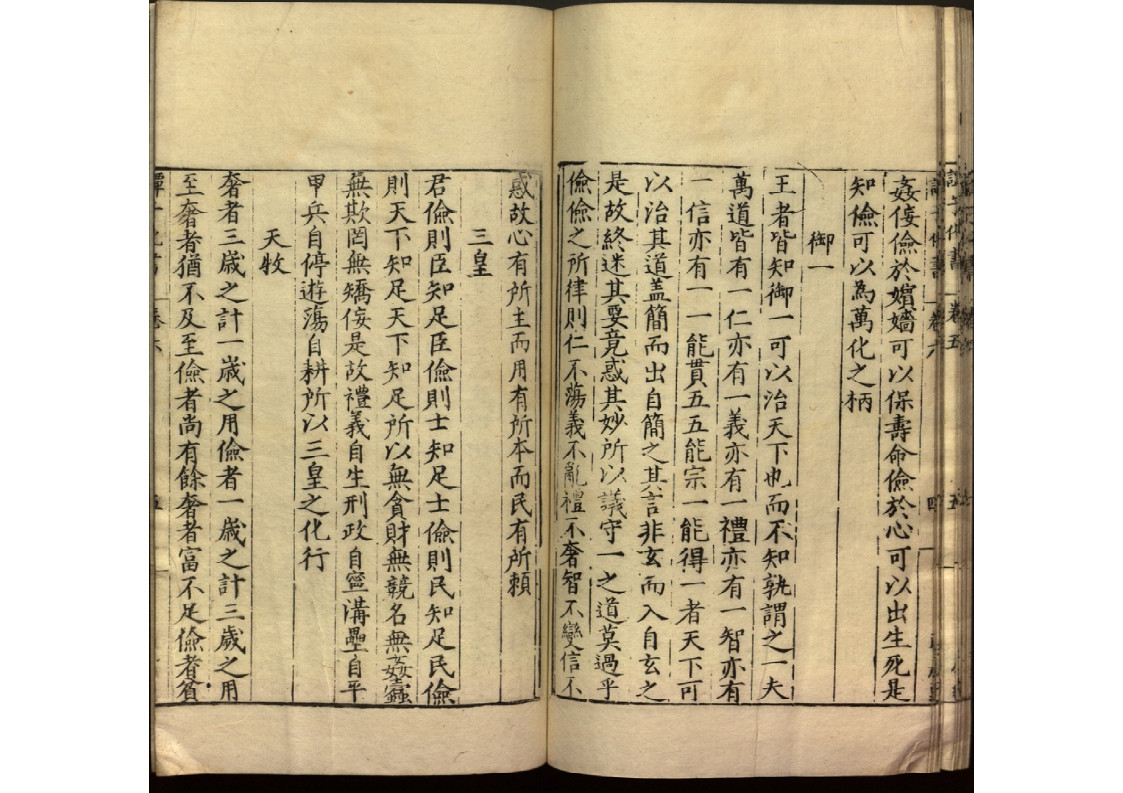 姦佞儉於嬪嬙可以保壽命儉於心可以出生死是
知儉可以為萬化之柄
御一
王者皆知御一可以治天下也而不知孰謂之一夫
萬道皆有一仁亦有一義亦有一禮亦有一智亦有
一信亦有一一能貫五五能宗一能得一者天下可
以治其道盖簡而出自簡之其言非玄而入自玄之
是故終迷其要竟惑其妙所以議守一之道莫過乎
儉儉之所律則仁不蕩義不亂禮不奢智不變信不
惑故心有所主而用有所本而民有所賴
三皇
君儉則臣知足臣儉則士知足士儉則民知足民儉
則天下知足天下知足所以無貪財無競名無姦蠹
無欺罔無矯佞是故禮義自生刑政自寧溝壘自平
甲兵自停遊蕩自耕所以三皇之化行
天牧
奢者三歲之計一歲之用儉者一歲之計三歲之用
至奢者猶不及至儉者尚有餘奢者富不足儉者貧